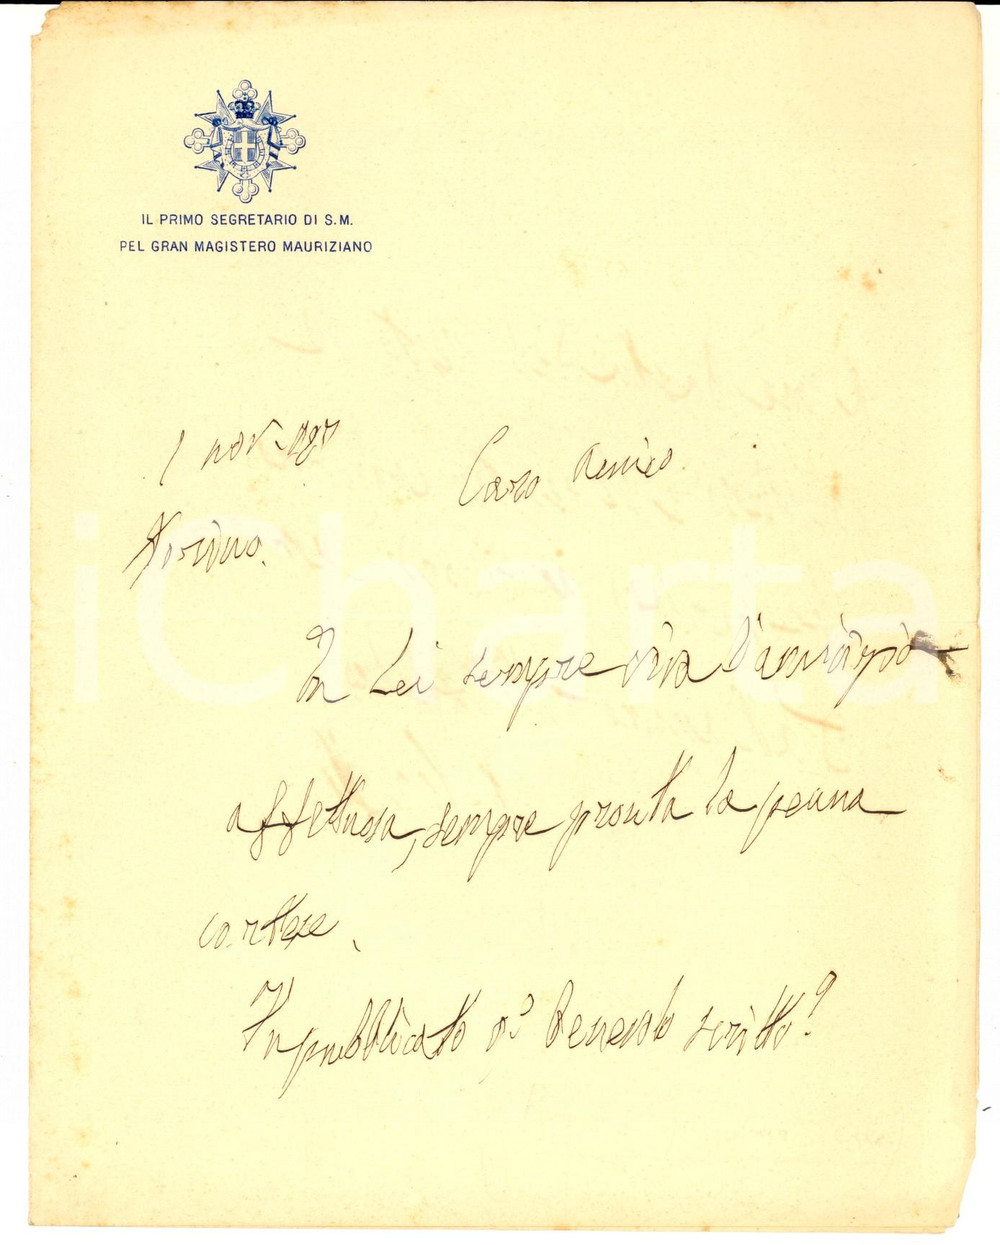 IL PRIMO SEGRETARIO DI S.M.
PEL GRAN MAGISTERO MAURIZIANO
1 nov.
Caro Amico
Torino.
In Lei sempre viva l'amicizia
affettuosa, sempre pronta la penna
cortese.
Fu pubblicato scritto?
iCharta